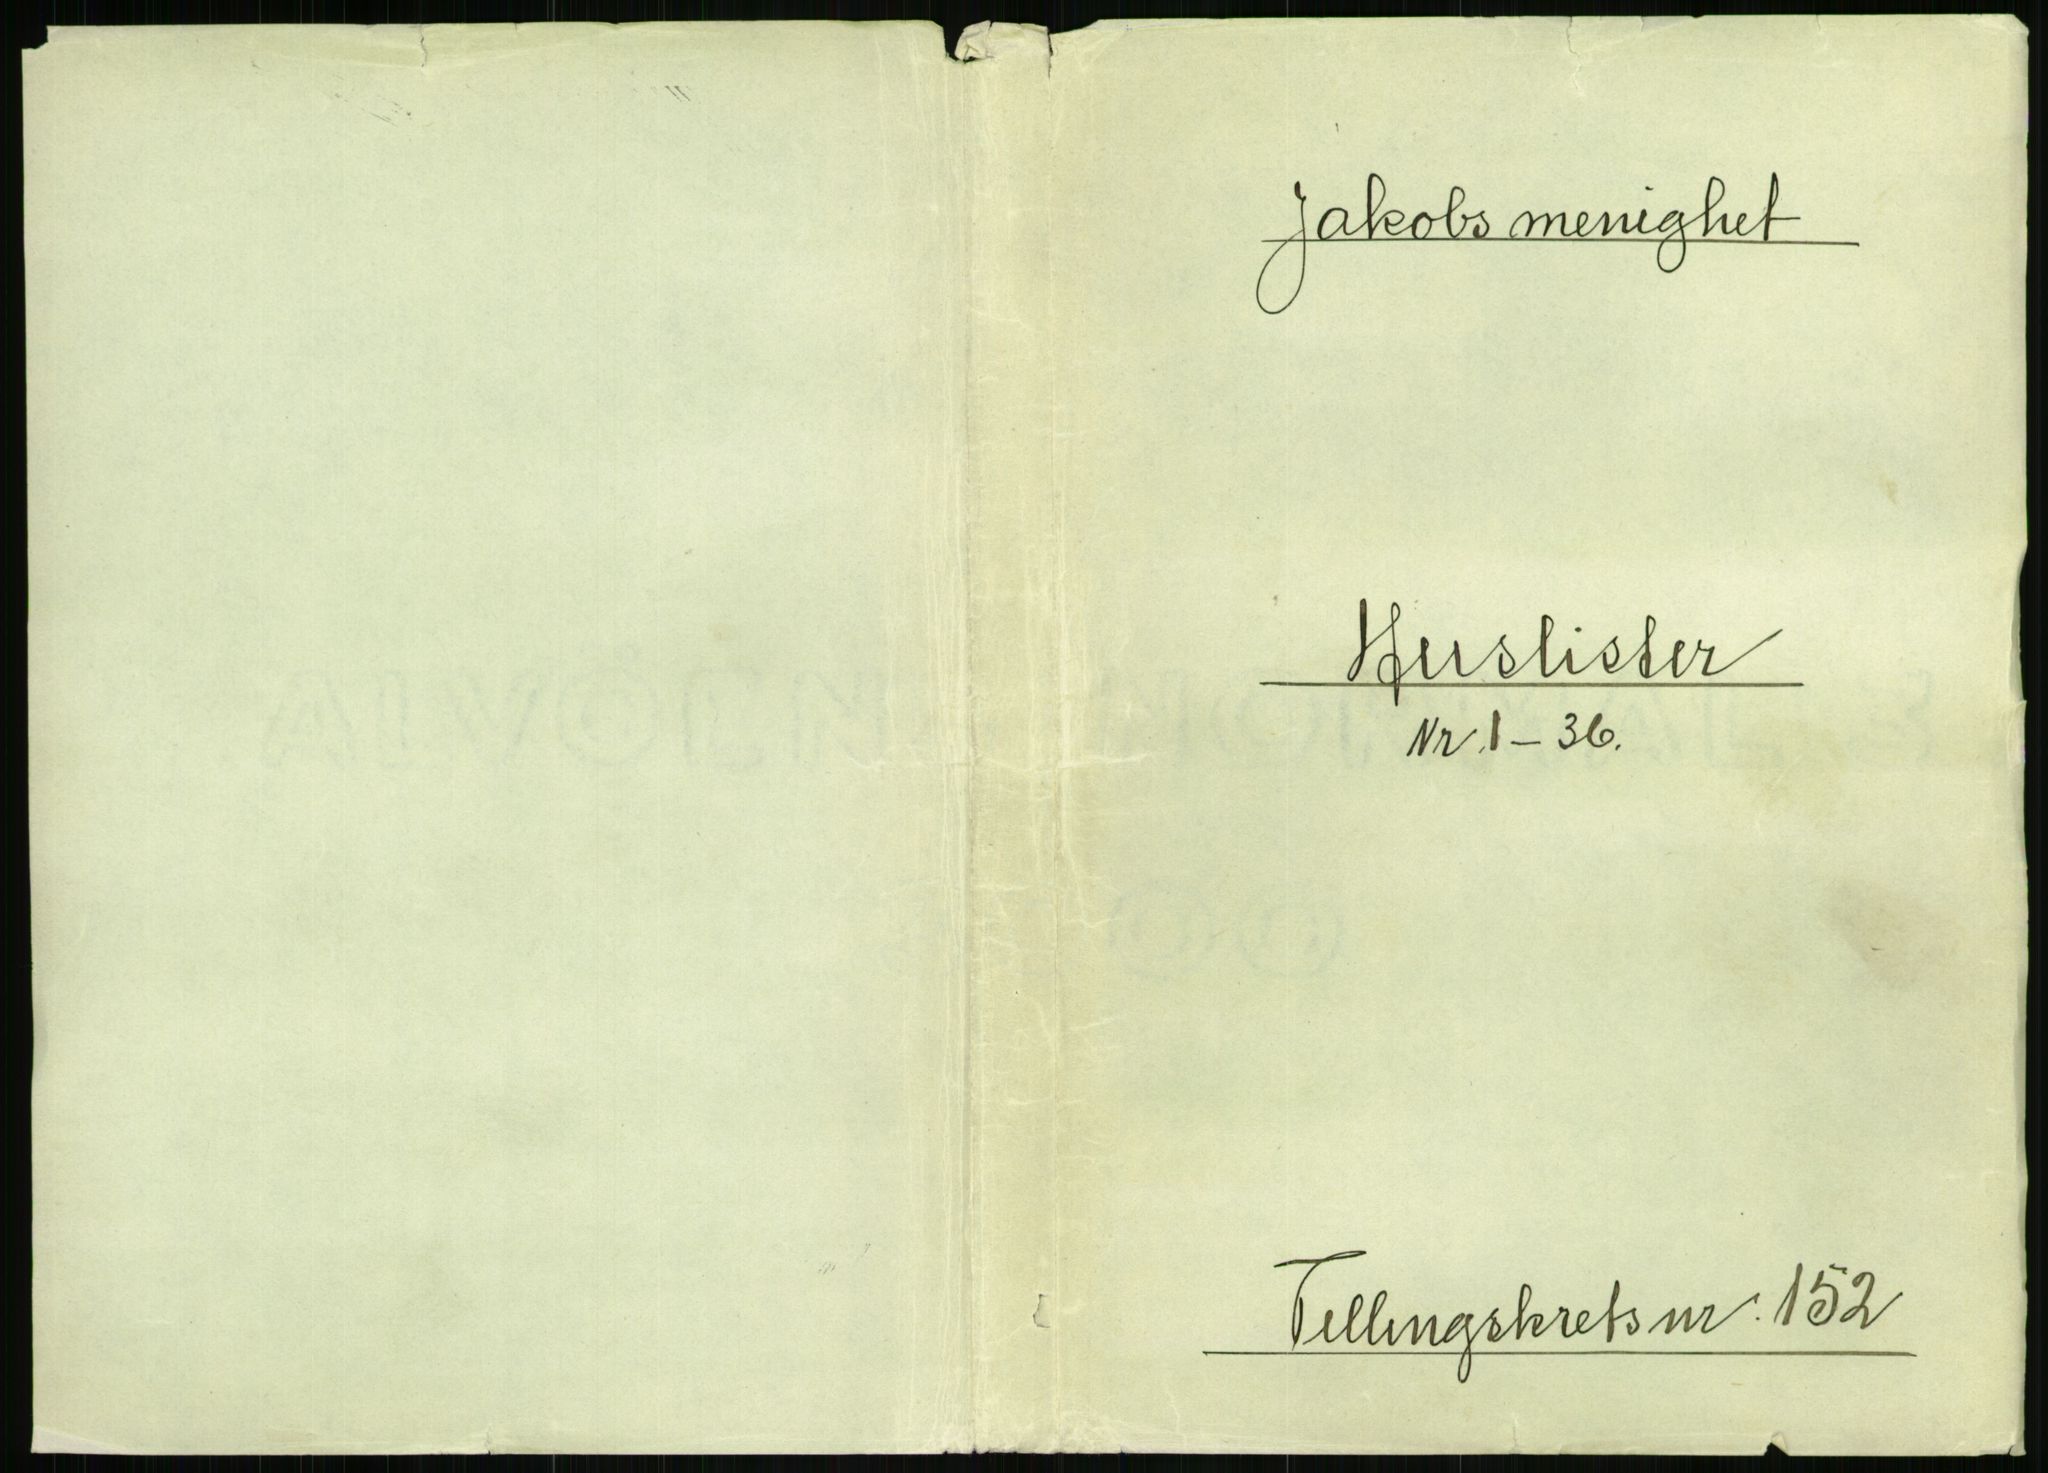 Jakobs menighet
Huslister
Nr. 1 – 36.
Tellingskrets nr. 152